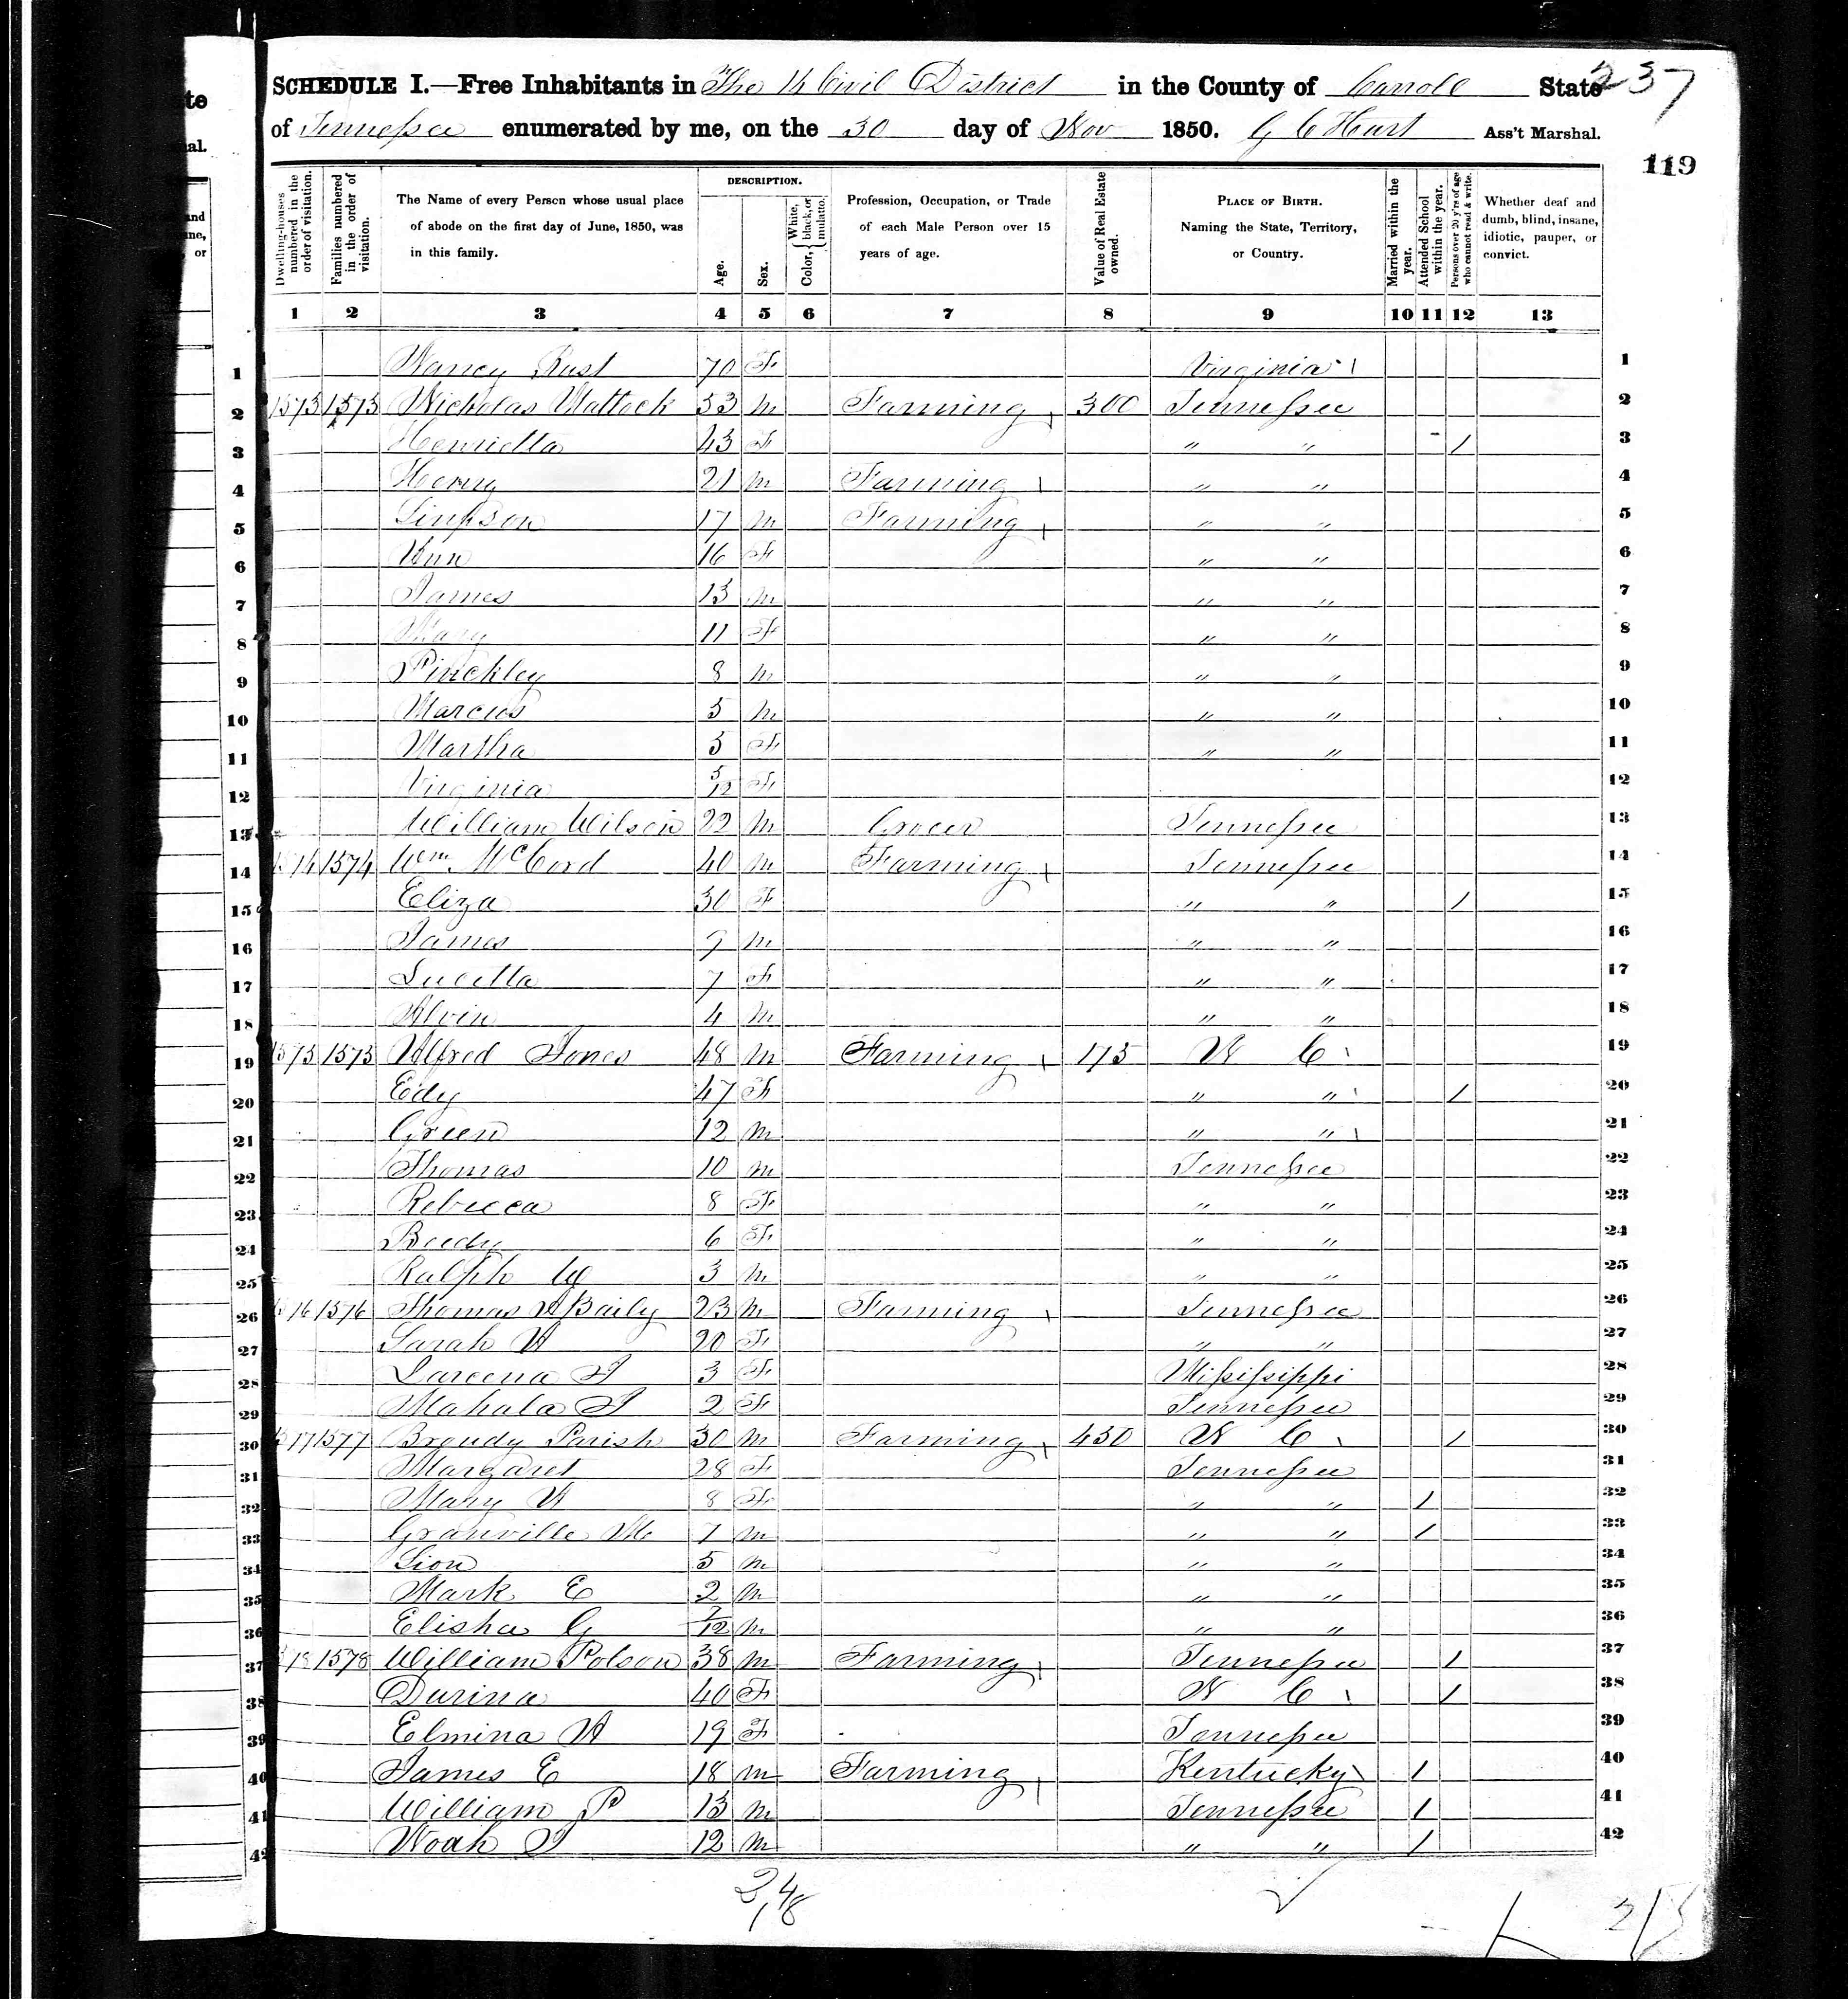 237
SCHEDULE I.—Free Inhabitants in The 14 Civil District in the County of Carroll State
of Tennessee enumerated by me, on the 30 day of Nov 1850. G C Hurt Ass't Marshal.
119
Dwelling-houses numbered in the order of visitation.
Families numbered in the order of visitation.
The Name of every Person whose usual place of abode on the first day of June, 1850, was in this family.
DESCRIPTION.
Age.
Sex.
Color, { White, black, or mulatto.
Profession, Occupation, or Trade of each Male Person over 15 years of age.
Value of Real Estate owned.
PLACE OF BIRTH. Naming the State, Territory, or Country.
Married within the year.
Attended School within the year.
Persons over 20 y'rs of age who cannot read & write.
Whether deaf and dumb, blind, insane, idiotic, pauper, or convict.
1 2 3 4 5 6 7 8 9 10 11 12 13
1 Nancy Rust 70 F Virginia 1
2 1573 1573 Nicholas Mattock 53 M Farming 300 Tennessee 2
3 Henrietta 43 F " " / 3
4 Henry 21 M Farming " " 4
5 Simpson 17 M Farming " " 5
6 Ann 16 F " " 6
7 James 13 M " " 7
8 Mary 11 F " " 8
9 Pinckley 8 M " " 9
10 Marcus 5 M " " 10
11 Martha 5 F " " 11
12 Virginia 5/12 F 12
13 William Wilson 22 M Grocer Tennessee 13
14 1574 1574 Wm McCord 40 M Farming Tennessee 14
15 Eliza 30 F " " / 15
16 James 9 M " " 16
17 Lucetta 7 F " " 17
18 Alvin 4 M " " 18
19 1575 1575 Alfred Jones 48 M Farming 175 N C 19
20 Edy 47 F " " / 20
21 Green 12 M " " 21
22 Thomas 10 M Tennessee 22
23 Rebecca 8 F " " 23
24 Beedy 6 F " " 24
25 Ralph W 3 M " " 25
26 1576 1576 Thomas A Baily 23 M Farming Tennessee 26
27 Sarah A 20 F " " 27
28 Lareena J 3 F Missippi 28
29 Mahala J 2 F Tennessee 29
30 1577 1577 Broudy Parish 30 M Farming 450 N C / 30
31 Margaret 28 F Tennessee 31
32 Mary A 8 F " " / 32
33 Granville M 7 M " " / 33
34 Sion 5 M " " 34
35 Mark E 2 M " " 35
36 Elisha G 7/12 M " " 36
37 1578 1578 William Polson 38 M Farming Tennessee / 37
38 Durina 40 F N C / 38
39 Elmina A 19 F Tennessee 39
40 James E 18 M Farming Kentucky / 40
41 William P 13 M Tennessee / 41
42 Noah J 12 M " " / 42